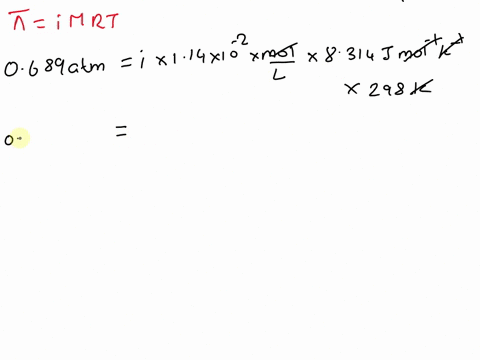 π = iMRT
0.689 atm = i × 1.14 × 10⁻² × mol/L × 8.314 J mol⁻¹ K⁻¹
× 298 K
0. =